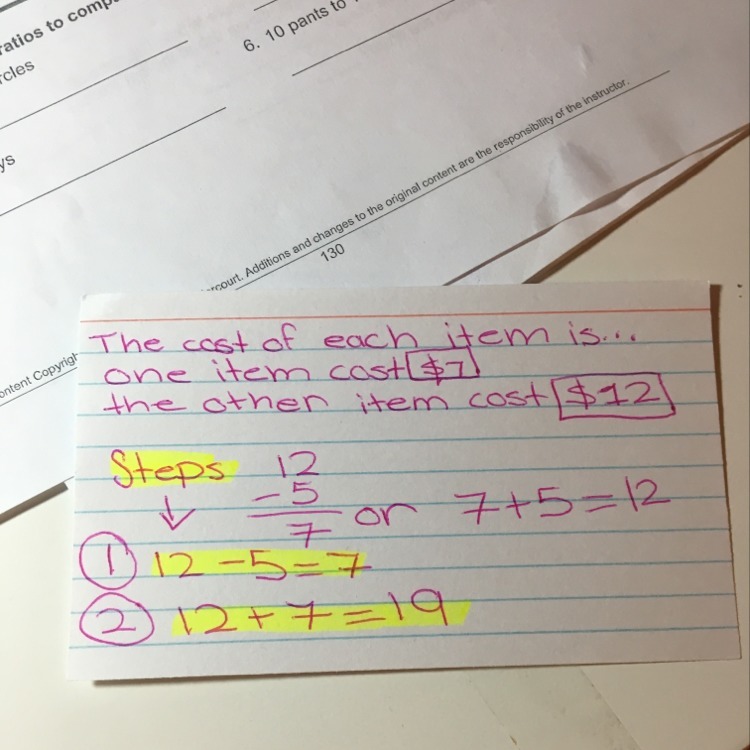 ratios to
rcles
6. 10 pants to
ys
court. Additions and changes to the original content are the responsibility of the instructor.
130
ontent Copyrigh
The cost of each item is...
one item cost $7
the other item cost $12
Steps
12
-5
7
or 7+5=12
1 12-5=7
2 12+7=19